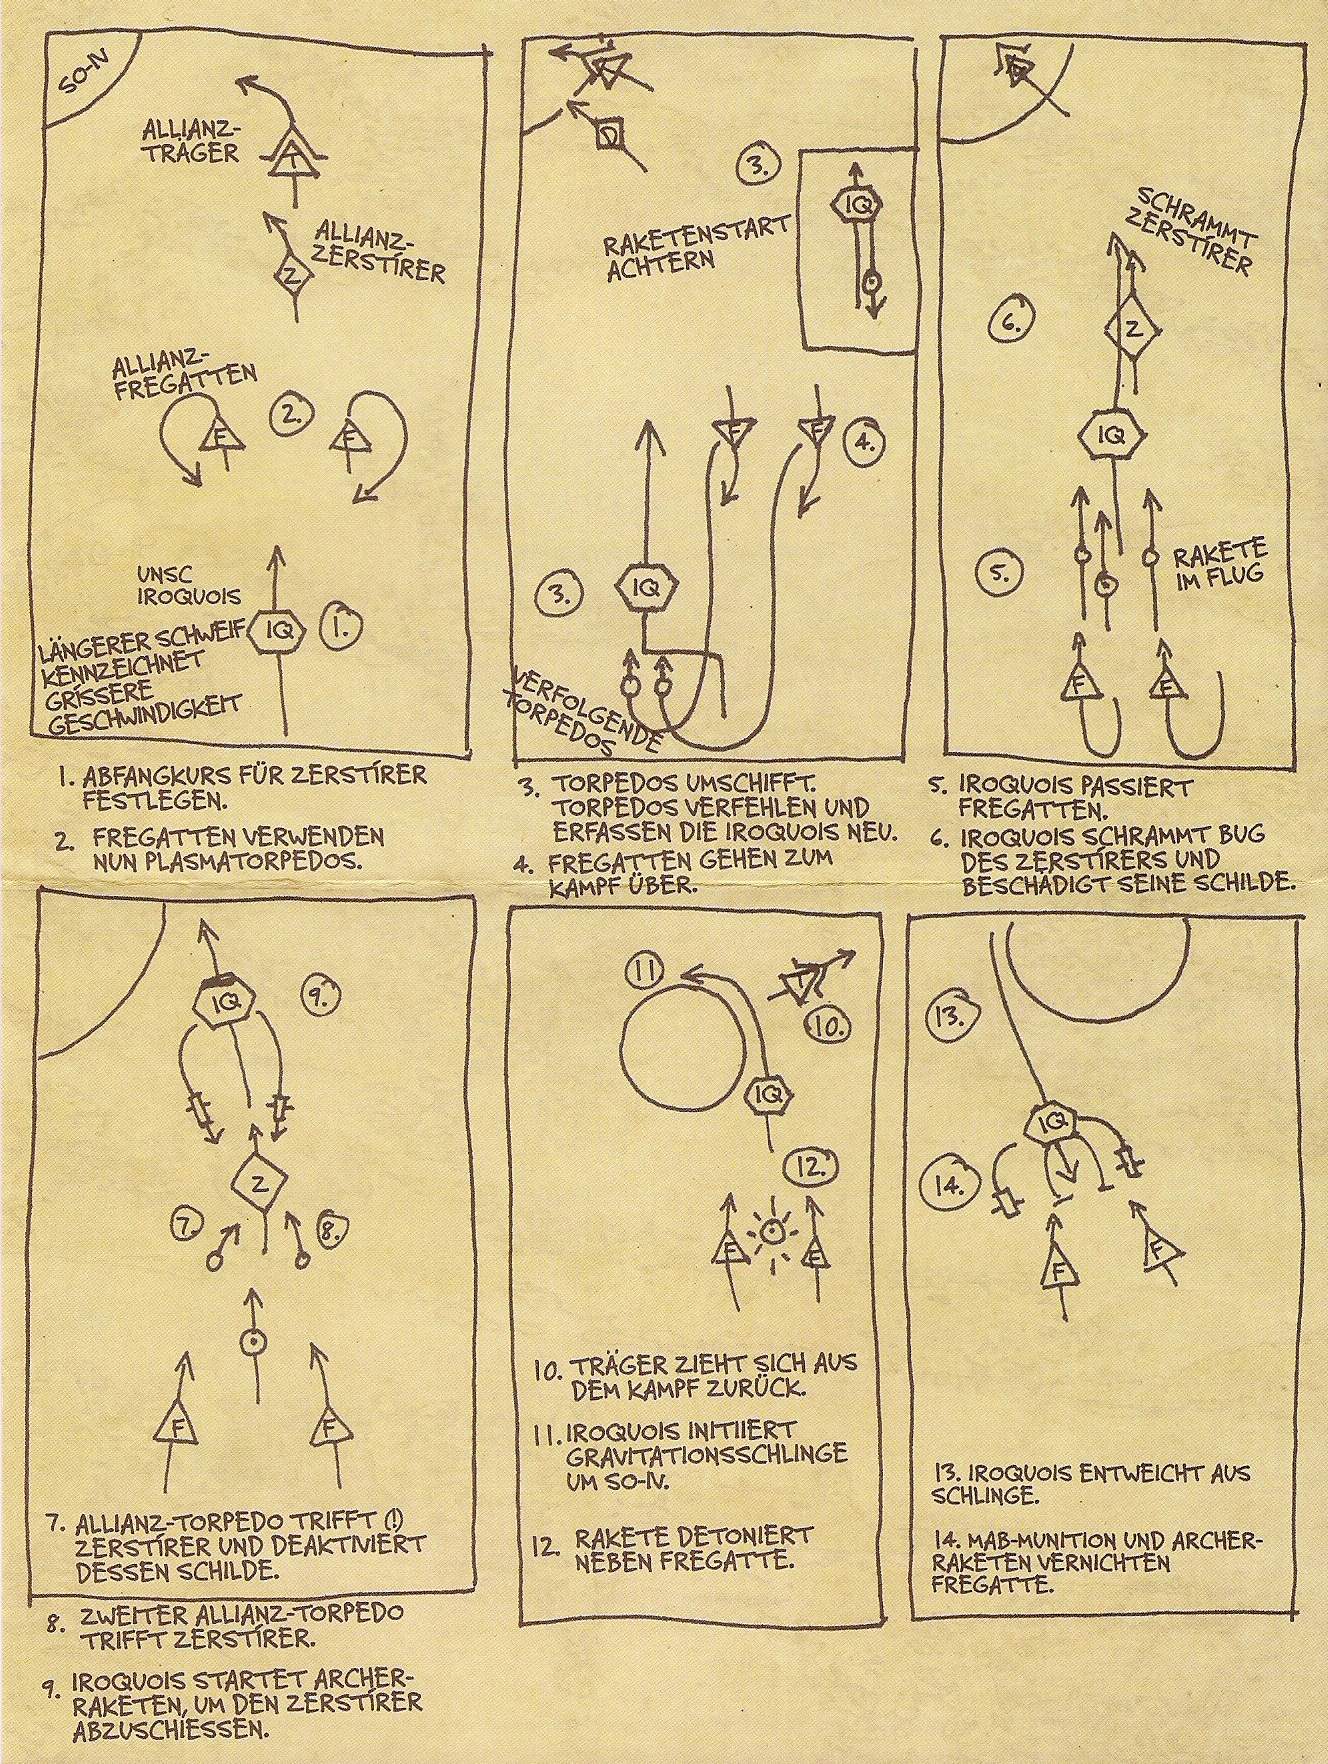 SO-IV
ALLIANZ-
TRÄGER
T
ALLIANZ-
ZERSTÍRER
Z
ALLIANZ-
FREGATTEN
F
2.
F
UNSC
IROQUOIS
IQ
1.
LÄNGERER SCHWEIF
KENNZEICHNET
GRÍSSERE
GESCHWINDIGKEIT
1. ABFANGKURS FÜR ZERSTÍRER
FESTLEGEN.
2. FREGATTEN VERWENDEN
NUN PLASMATORPEDOS.
D
3.
IQ
RAKETENSTART
ACHTERN
F
F
4.
3.
IQ
VERFOLGENDE
TORPEDOS
3. TORPEDOS UMSCHIFFT.
TORPEDOS VERFEHLEN UND
ERFASSEN DIE IROQUOIS NEU.
4. FREGATTEN GEHEN ZUM
KAMPF ÜBER.
SCHRAMMT
ZERSTÍRER
6.
Z
IQ
5.
RAKETE
IM FLUG
F
F
5. IROQUOIS PASSIERT
FREGATTEN.
6. IROQUOIS SCHRAMMT BUG
DES ZERSTÍRERS UND
BESCHÄDIGT SEINE SCHILDE.
IQ
9.
Z
7.
8.
F
F
7. ALLIANZ-TORPEDO TRIFFT (!)
ZERSTÍRER UND DEAKTIVIERT
DESSEN SCHILDE.
8. ZWEITER ALLIANZ-TORPEDO
TRIFFT ZERSTÍRER.
9. IROQUOIS STARTET ARCHER-
RAKETEN, UM DEN ZERSTÍRER
ABZUSCHIESSEN.
11
T
10.
IQ
12.
F
F
10. TRÄGER ZIEHT SICH AUS
DEM KAMPF ZURÜCK.
11. IROQUOIS INITIIERT
GRAVITATIONSSCHLINGE
UM SO-IV.
12. RAKETE DETONIERT
NEBEN FREGATTE.
13.
IQ
14.
F
F
13. IROQUOIS ENTWEICHT AUS
SCHLINGE.
14. MAB-MUNITION UND ARCHER-
RAKETEN VERNICHTEN
FREGATTE.